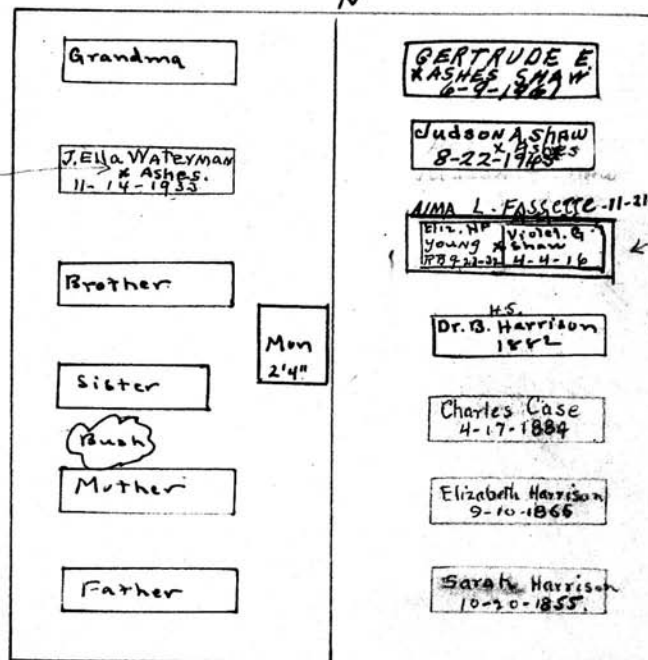 N
Grandma
J. Ella Waterman
x Ashes.
11-14-1933
Brother
Sister
Bush
Mother
Father
Mon
2'4"
GERTRUDE E.
x ASHES SHAW
6-9-1961
Judson A. Shaw
x Ashes
8-22-1945
ALMA L. FASSETTE-11-21
Eliz. HP
Young x
RB 9-23-32
Violet. G.
Shaw
4-4-16
H.S.
Dr. B. Harrison
1882
Charles Case
4-17-1884
Elizabeth Harrison
9-10-1865
Sarah Harrison
10-20-1855.